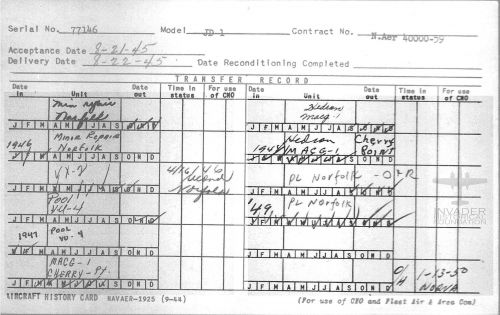 Serial No. 77146 Model JD-1 Contract No. N.Aer 40000-59
Acceptance Date 8-21-45
Delivery Date 8-22-45 Date Reconditioning Completed
TRANSFER RECORD
Date in Unit Date out Time in status For use of CNO Date in Unit Date out Time in status For use of CNO
Min repair
Norfolk
J F M A M J J A S O N D
1946 Minor Repair
Norfolk
J F M A M J J A S O N D
VX-2 4/26/46
Norfolk
J F M A M J J A S O N D
POOL
VU-4
J F M A M J J A S O N D
1947 POOL
VU-4
J F M A M J J A S O N D
MACG-1
CHERRY-Pt.
J F M A M J J A S O N D
Hedron
Macg-1
J F M A M J J A S O N D
1948 Hedron Cherry
MACG-1 POINT
J F M A M J J A S O N D
PL Norfolk -O+R
J F M A M J J A S O N D
'49 PL Norfolk
J F M A M J J A S O N D
J F M A M J J A S O N D
O/H 1-13-50
NORVA
J F M A M J J A S O N D
INVADER
FOUNDATION
AIRCRAFT HISTORY CARD NAVAER-1925 (9-44) (For use of CNO and Fleet Air & Area Com)